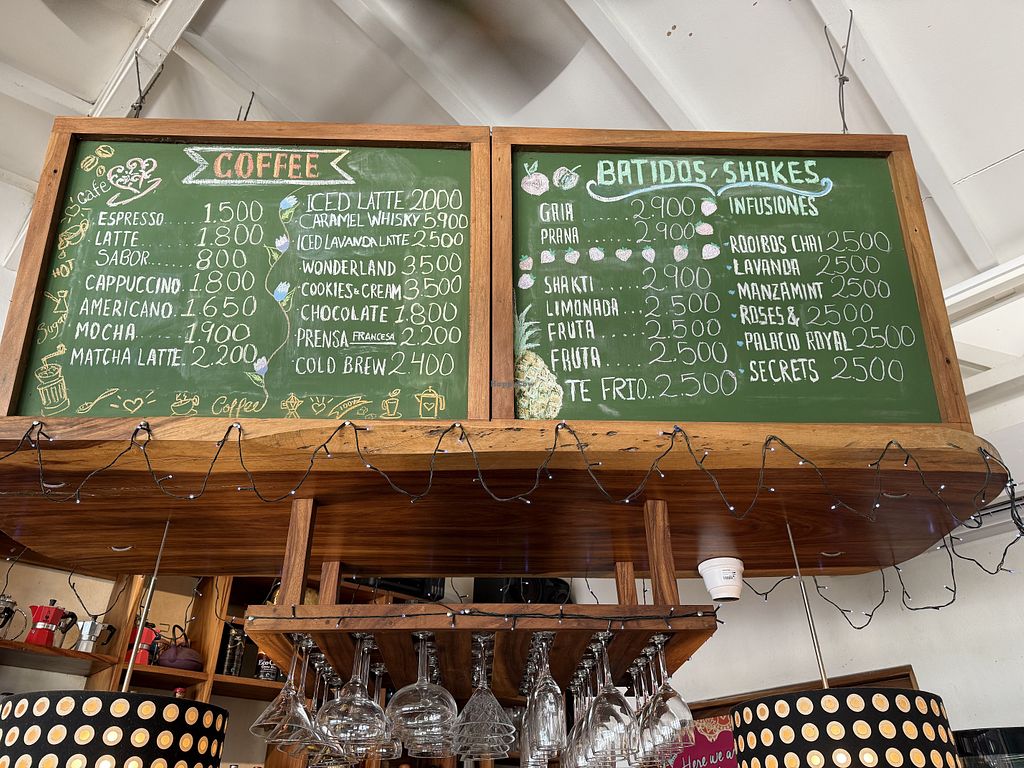 COFFEE
Café
ESPRESSO 1.500
LATTE 1.800
SABOR 800
CAPPUCCINO 1.800
AMERICANO 1.650
MOCHA 1.900
MATCHA LATTE 2.200
HOT
Sugar
Coffee
100%
ICED LATTE 2000
CARAMEL WHISKY 5.900
ICED LAVANDA LATTE 2.500
WONDERLAND 3.500
COOKIES & CREAM 3.500
CHOCOLATE 1.800
PRENSA FRANCESA 2.200
COLD BREW 2.400
BATIDOS SHAKES
GAIA 2.900
PRANA 2.900
SHAKTI 2.900
LIMONADA 2.500
FRUTA 2.500
FRUTA 2.500
TE FRIO 2.500
INFUSIONES
ROOIBOS CHAI 2500
LAVANDA 2500
MANZAMINT 2500
ROSES & 2500
PALACIO ROYAL 2500
SECRETS 2500
Here we a